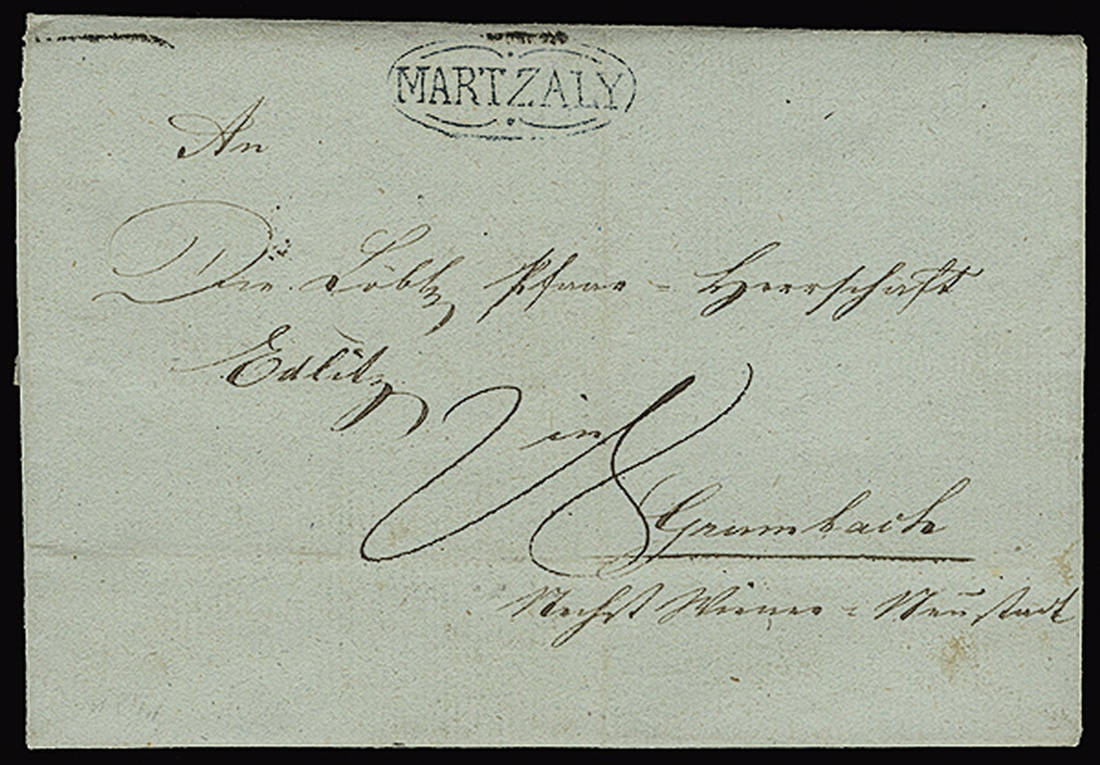 MARTZALY
An
Die Löbl Pfarr = Herrschaft
Edlitz
in
18
Grumbach
Nechst Wiener = Neustadt